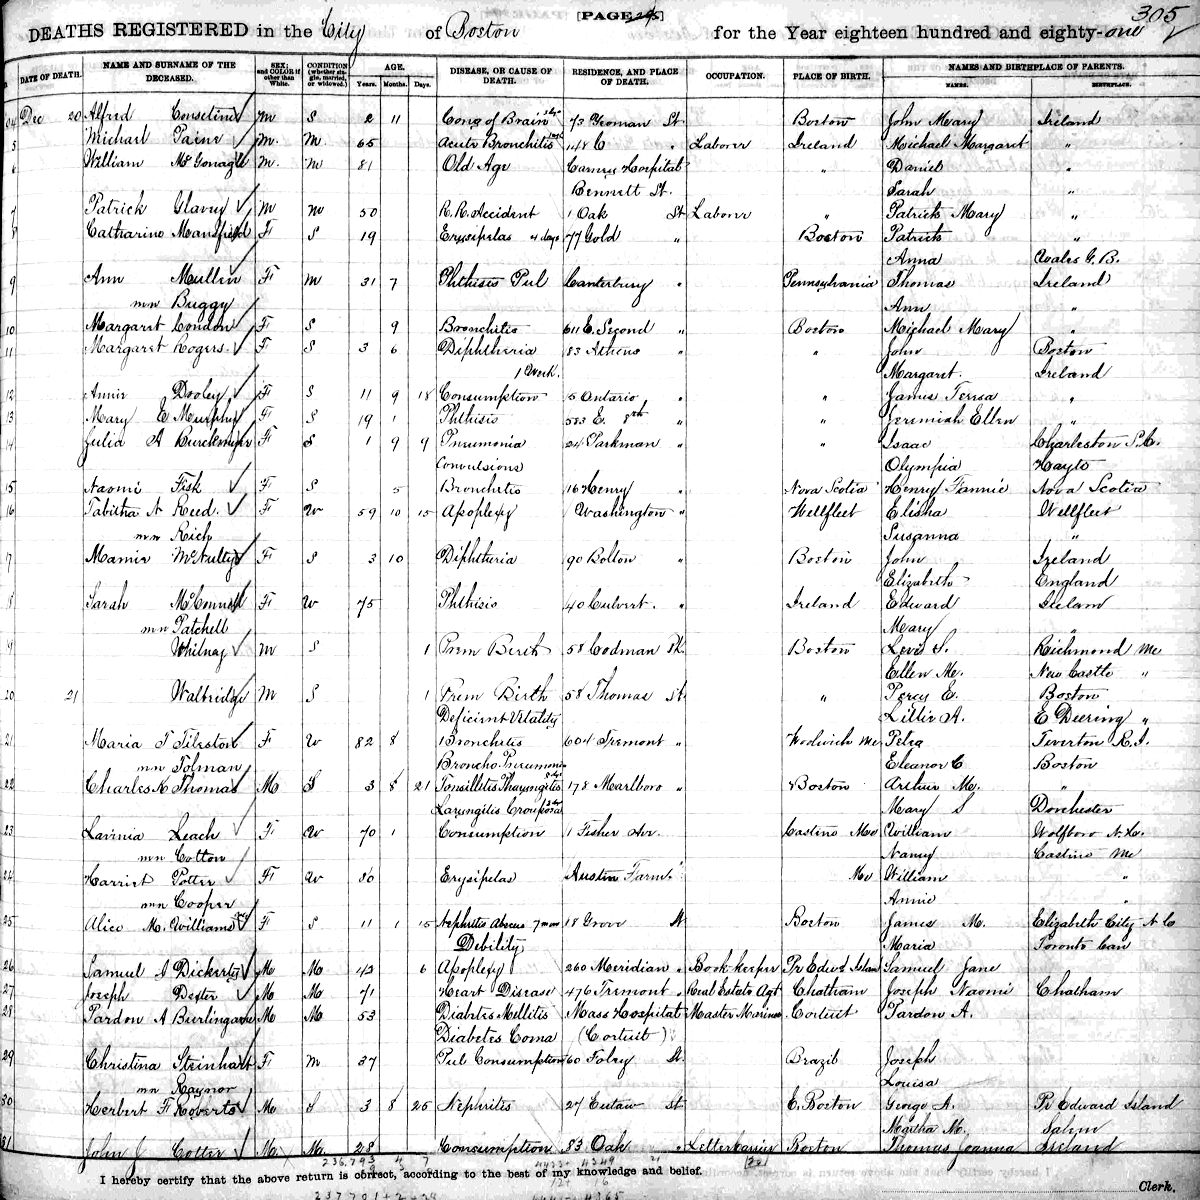 [PAGE 305]
305
DEATHS REGISTERED in the City of Boston for the Year eighteen hundred and eighty-one
DATE OF DEATH. NAME AND SURNAME OF THE DECEASED. SEX; and COLOR if other than White. CONDITION (whether single, married, or widowed.) AGE. Years. Months. Days. DISEASE, OR CAUSE OF DEATH. RESIDENCE, AND PLACE OF DEATH. OCCUPATION. PLACE OF BIRTH. NAMES AND BIRTHPLACE OF PARENTS. NAMES. BIRTHPLACE.
Dec 20 Alfred M S 2 11 Cong of Brain 73 Yeoman St Boston John Mary Ireland
5 Michael Paine M. M. 65 Acute Bronchitis 148 C " Laborer Ireland Michael Margaret "
6 William McGonagle M. M 81 Old Age Carney Hospital " Daniel "
Bennett St. Sarah "
7 Patrick Glavey M M 50 R. R. Accident 1 Oak St Laborer " Patrick Mary "
8 Catharine Mansfield F S 19 Erysipelas 4 days 77 Gold " Boston Patrick "
Anna Wales G. B.
9 Ann Mullen F M 31 7 Phthisis Pul Canterbury " Pennsylvania Thomas Ireland
mn Buggy Ann "
10 Margaret Condon F S 9 Bronchitis 611 E. Second " Boston Michael Mary "
11 Margaret Rogers F S 3 6 Diphtheria 83 Athens " " John Boston
1 Week. Margaret. Ireland
12 Annie Dooley F S 11 9 18 Consumption 5 Ontario " " James Teresa "
13 Mary E Murphy F S 19 1 Phthisis 583 E. 8th " " Jeremiah Ellen "
14 Julia A Burckmyer F S 1 9 9 Pneumonia 24 Parkman " " Isaac Charleston S.C.
Convulsions Olympia Hayte
15 Naomi Fisk F S 5 Bronchitis 16 Henry " Nova Scotia Henry Fannie Nova Scotia
16 Tabitha A Reed. F W 59 10 15 Apoplexy Washington " Wellfleet Elisha Wellfleet
mn Rich Susanna "
17 Mamie McNulty F S 3 10 Diphtheria 90 Bolton " Boston John Ireland
Elizabeth England
18 Sarah McConnell F W 75 Phthisis 40 Culvert. " Ireland Edward Ireland
mn Patchell Mary "
19 Whitney M S 1 Prem Birth 58 Codman Pk. Boston Levi S. Richmond Me
Ellen M. New Castle "
20 21 Walbridge M S 1 Prem Birth 58 Thomas St " Percy E. Boston
Deficient Vitality Lillie A. E Deering "
21 Maria T Tileston F W 82 8 Bronchitis 604 Tremont " Woolwich Me Peleg Tiverton R.I.
mn Tolman Broncho. Pneumonia Eleanor C Boston
22 Charles Thomas M S 3 8 21 Tonsillitis Pharyngitis 178 Marlboro " Boston Arthur M. "
Laryngitis Mary S Dorchester
23 Lavinia Leach F W 70 1 Consumption 1 Fisher Av. Castine Me William Wolfboro N.H.
mn Cotton Nancy Castine Me
24 Harriet Potter F W 80 Erysipelas Austin Farm. Me William "
mn Cooper Annie "
25 Alice M. Williams F S 11 1 15 Nephritis Abscess 7 mos 18 Grove St Boston James M. Elizabeth City N Co
Debility Maria Toronto Can
26 Samuel Dickerty M M 42 6 Apoplexy 260 Meridian " Book-keeper Pr Edwd Island Samuel Jane
27 Joseph Dexter M M 71 Heart Disease 476 Tremont " Real Estate Agt Chatham Joseph Naomi Chatham
28 Pardon A Burlingame M M 53 Diabetes Mellitis Mass Hospital Master Mariner Cotuit Pardon A.
Diabetes Coma (Cotuit)
29 Christina Steinhart F M 37 Pul Consumption 60 Foley St. Brazil Joseph
mn Raynor Louisa
30 Herbert F Roberts M S 3 8 25 Nephritis 27 Eutaw St. E. Boston George A. Pr Edward Island
Martha M. Salem
31 John J Cotter M. M. 28 Consumption 83 Oak " Letter carrier Boston Thomas Joanna Ireland
I hereby certify that the above return is correct, according to the best of my knowledge and belief.
Clerk.